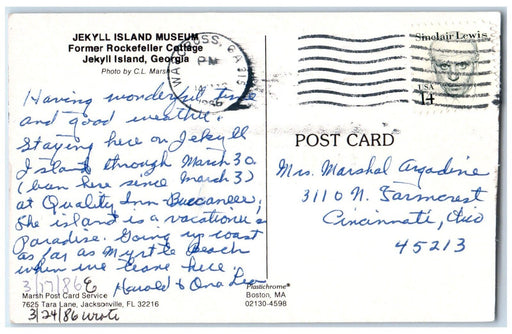 JEKYLL ISLAND MUSEUM
Former Rockefeller Cottage
Jekyll Island, Georgia
Photo by C.L. Marsh
Having wonderful time
and good weather.
Staying here on Jekyll
Island through March 30.
(been here since March 3)
at Quality Inn Buccaneer,
The island is a vacationer's
Paradise. Going up coast
as far as Myrtle Beach
when we leave here.
Harold & Ona Lea
3/17/86
Marsh Post Card Service
7625 Tara Lane, Jacksonville, FL 32216
3/24/86 wrote
Plastichrome®
Boston, MA
02130-4598
WAYCROSS, GA 315
PM
1986
Sinclair Lewis
USA
14
POST CARD
Mrs. Marshal
3110 N. Farmcrest
Cincinnati, Ohio
45213